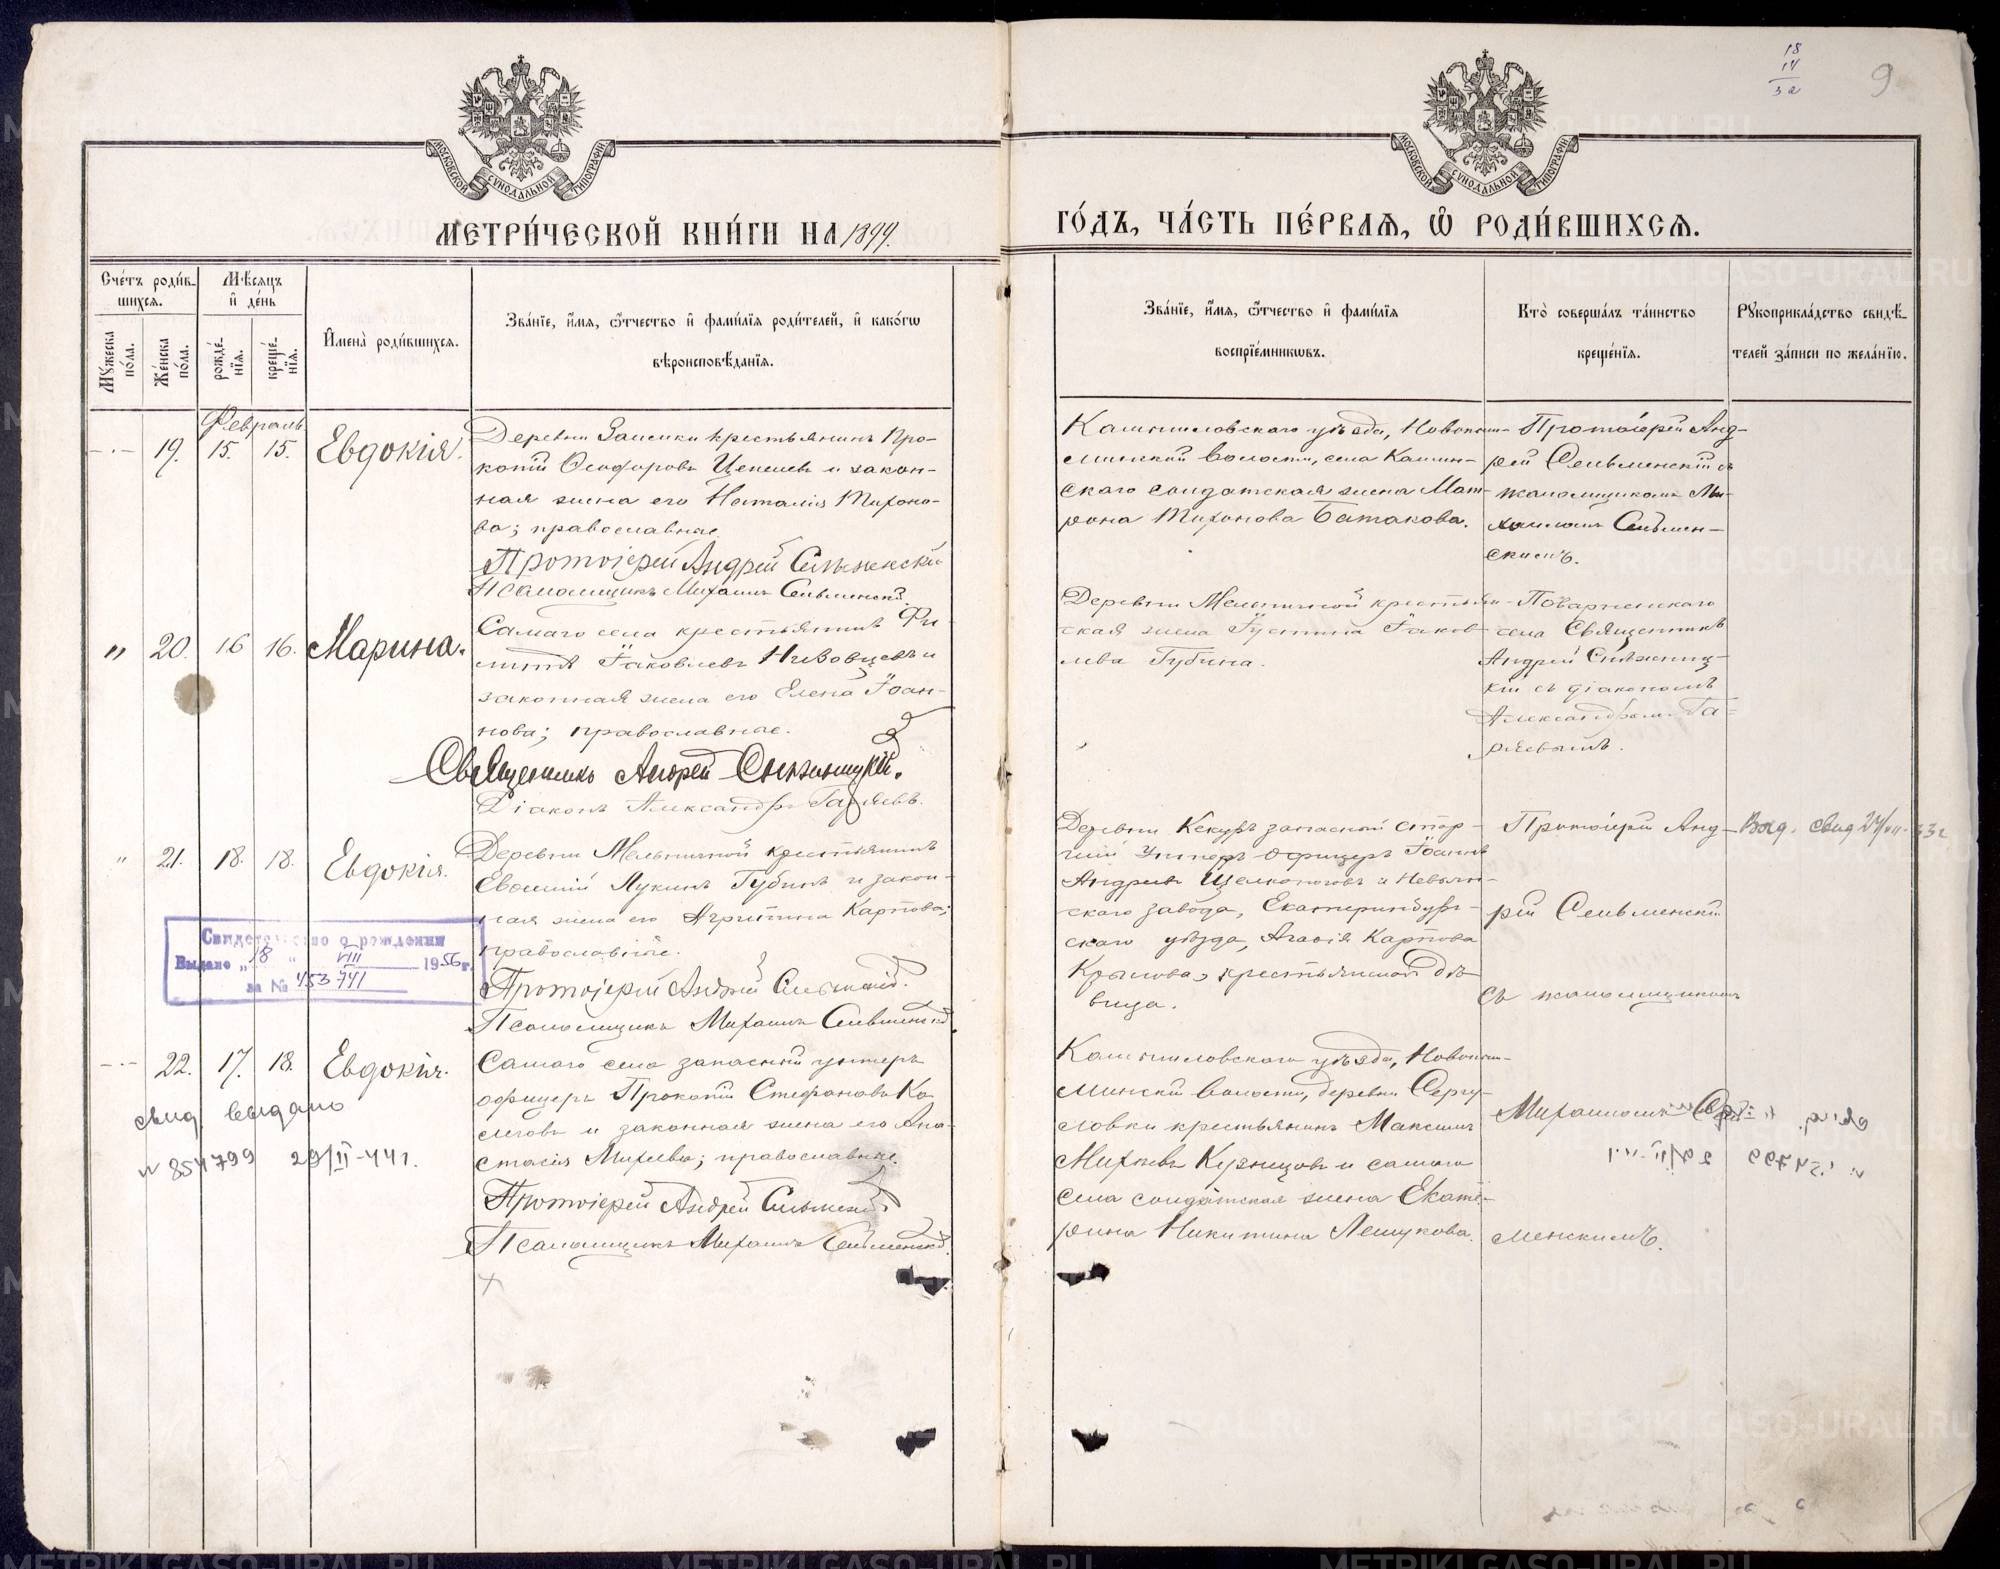 18
14
32
9
МОСКОВСКОЙ СѴНОДАЛЬНОЙ ТИПОГРАФІИ
МОСКОВСКОЙ СѴНОДАЛЬНОЙ ТИПОГРАФІИ
МЕТРИ́ЧЕСКОЙ КНИ́ГИ НА 1899.
ГО́ДЪ, ЧА́СТЬ ПЕ́РВАѦ, Ѡ҆ РОДИ́ВШИХСѦ.
Сче́тъ роди́в-
шихсѧ.
Мꙋ́жеска по́ла.
Же́нска по́ла.
Мѣ́сѧцъ
и҆ де́нь
рожде́-
нїѧ.
креще́-
нїѧ.
И҆мена̀ роди́вшихсѧ.
Зва́нїе, и҆́мѧ, ѻ҆́тчество и҆ фами́лїѧ роди́телей, и҆ како́гѡ
вѣроисповѣ́данїѧ.
Зва́нїе, и҆́мѧ, ѻ҆́тчество и҆ фами́лїѧ
воспрїе́мникѡвъ.
Кто̀ соверша́лъ та́инство
креще́нїѧ.
Рꙋкоприкла́дство свидѣ́-
телей за́писи по жела́нїю.
Февраль
19. 15. 15. Евдокія.
Деревни Заимки крестьянинъ Про-
копій Ѳеодоровъ Цепелевъ и закон-
ная жена его Наталія Тихоно-
ва; православные.
Протоіерей Андрей Сельменскій
Псаломщикъ Михаилъ Сельменскій.
Камышловскаго уѣзда, Новопыш-
минской волости, села Камин-
скаго солдатская жена Мат-
рона Тихонова Батакова.
Протоіерей Анд-
рей Сельменскій съ
псаломщикомъ Ми-
хаиломъ Сельмен-
скимъ.
" 20. 16 16. Марина.
Самаго села крестьянинъ Фи-
липпъ Іаковлевъ и
законная жена его Елена Іоан-
нова; православные.
Священникъ Андрей Снѣжницкій.
Діаконъ Александръ Гаряевъ.
Деревни Мельничной крестьян-
ская жена Іустина Іаков-
лева Губина.
села Священникъ
Андрей Снѣжниц-
кій съ діакономъ
Александромъ Га-
ряевымъ.
" 21. 18. 18. Евдокія.
Деревни Мельничной крестьянинъ
Евѳимій Лукинъ Губинъ и закон-
ная жена его Агрипина Карпова;
православные.
Протоіерей Андрей Сельменскій.
Псаломщикъ Михаилъ Сельменскій.
Деревни Кекуръ запасный стар-
шій Унтеръ-офицеръ Іоаннъ
Андреевъ Щелконоговъ и Невьян-
скаго завода, Екатеринбург-
скаго уѣзда, Агаѳія Карпова
Крылова, крестьянская дѣ-
вица.
Протоіерей Анд-
рей Сельменскій
съ псаломщикомъ
Выд. свид 27/VII-33г
Свидетельство о рождении
Выдано „18 " VIII 1956 г.
за № 453741
22. 17. 18. Евдокія.
свид выдано
№ 854799 29/II-44г.
Самаго села запасный унтеръ
офицеръ Прокопій Стефановъ Ко-
леговъ и законная жена его Ана-
стасія Михеева; православные.
Протоіерей Андрей Сельменскій
Псаломщикъ Михаилъ Сельменскій.
Камышловскаго уѣзда, Новопыш-
минской волости, деревни Сергу-
ловки крестьянинъ Максимъ
Михеевъ Кузнецовъ и самаго
села солдатская жена Екате-
рина Никитина Лешукова.
Михаиломъ Сель-
менскимъ.
METRIKI.GASO-URAL.RU